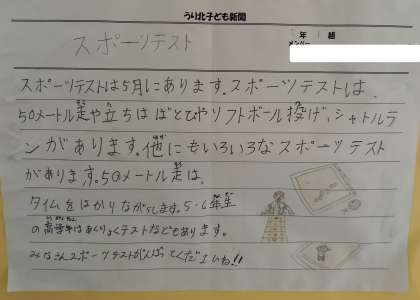 うり北子ども新聞
年 組
メンバー
スポーツテスト
スポーツテストは5月にあります。スポーツテストは、
50メートル走や立ちはばとびやソフトボール投げ、シャトルラ
ンがあります。他にもいろいろなスポーツテスト
があります。50メートル走は、
タイムをはかりながらします。5・6年生
の高学年はあくりょくテストなどもあります。
みなさんスポーツテストがんばってくださいね!!